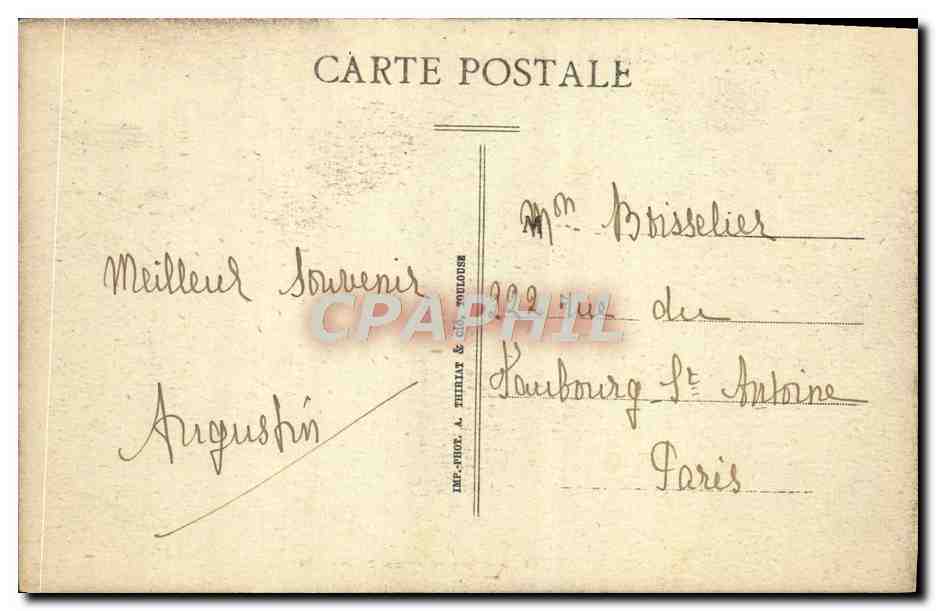 CARTE POSTALE
Meilleur Souvenir
Augustin
IMP.-PHOT. A. THIRIAT & Cie, TOULOUSE
Mon Boisselier
222 rue du
Faubourg St Antoine
Paris
CPAPHIL